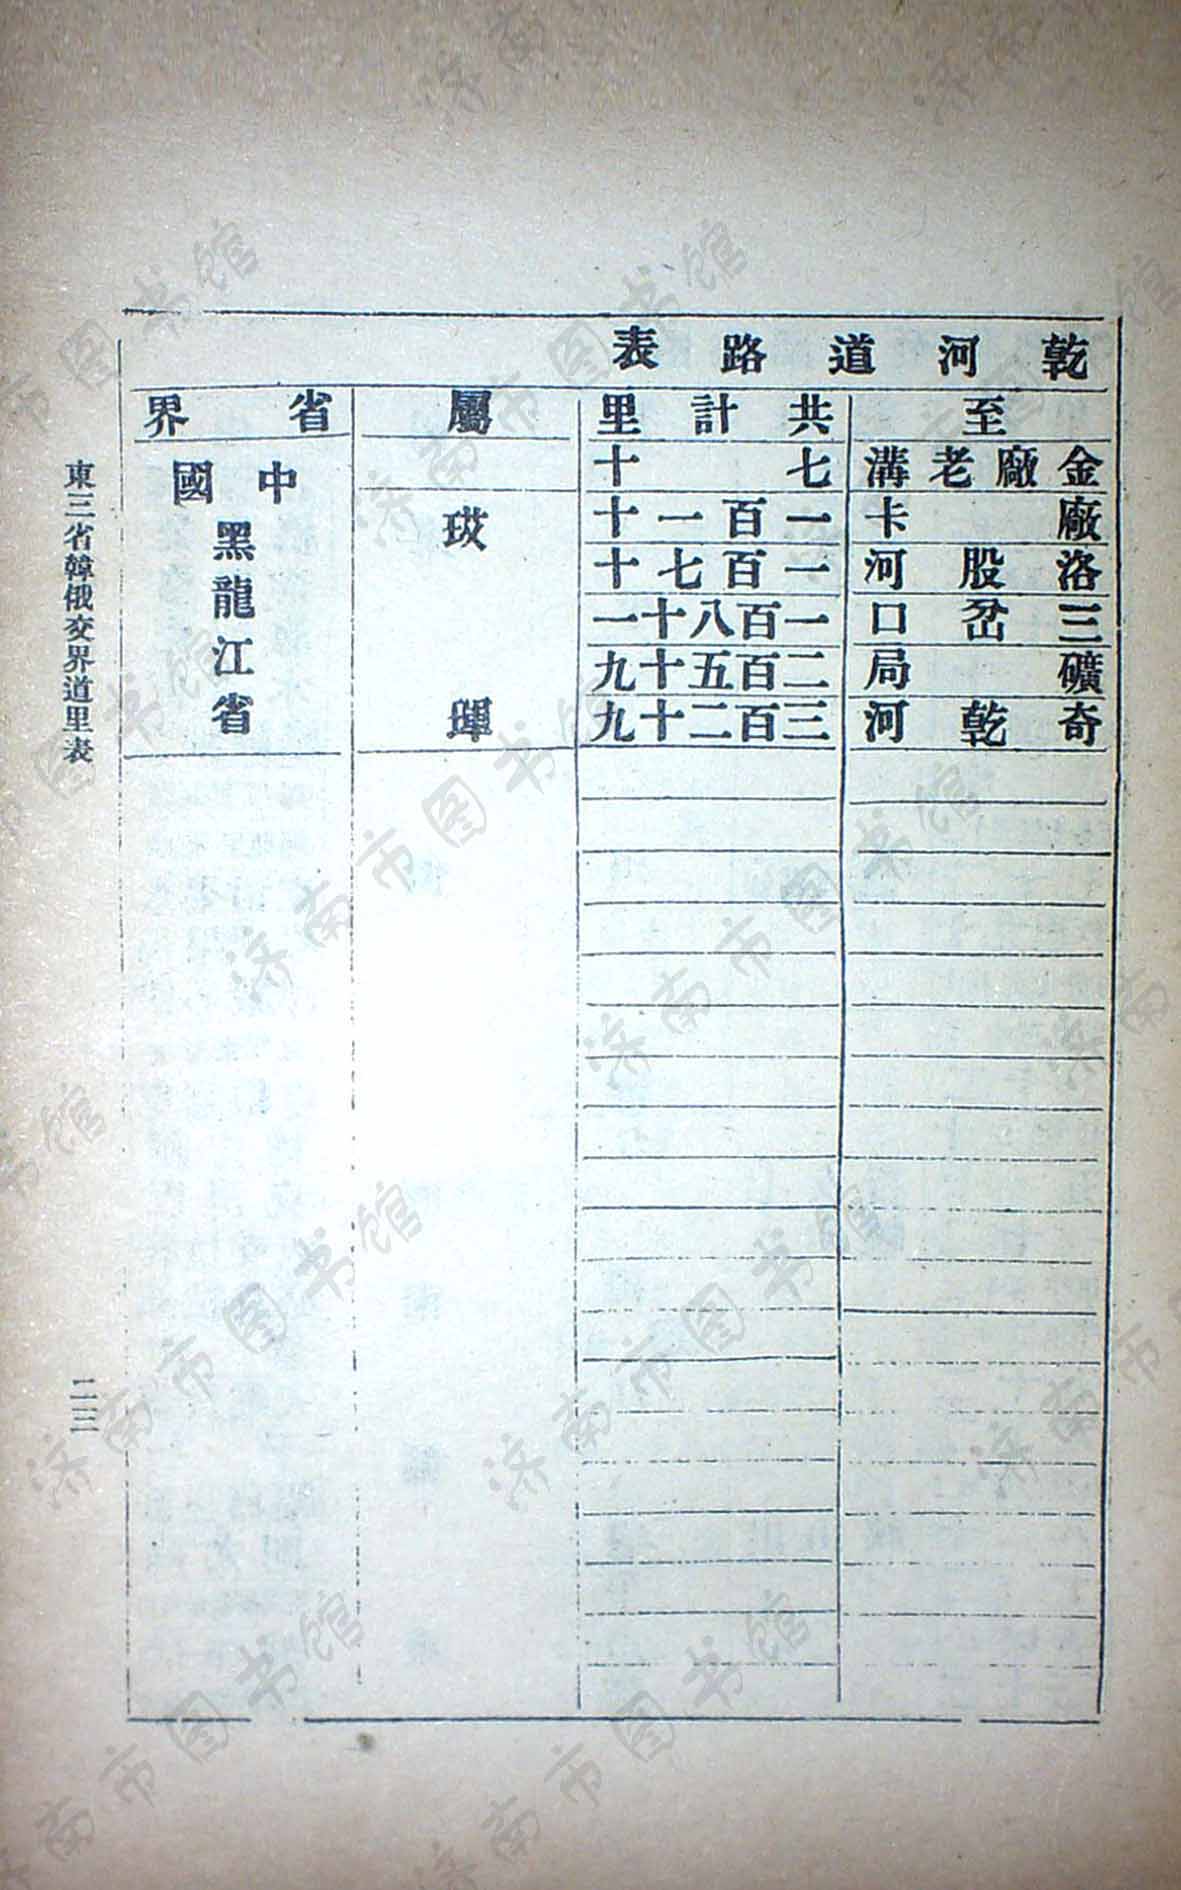 乾河道路表
至 共計里 屬 省界
金廠老溝 七十
廠卡 一百一十
洛股河 一百七十
三岔口 一百八十一
礦局 二百五十九
奇乾河 三百二十九
瑷琿
中國
黑龍江省
東三省韓俄交界道里表
二三
济南市图书馆